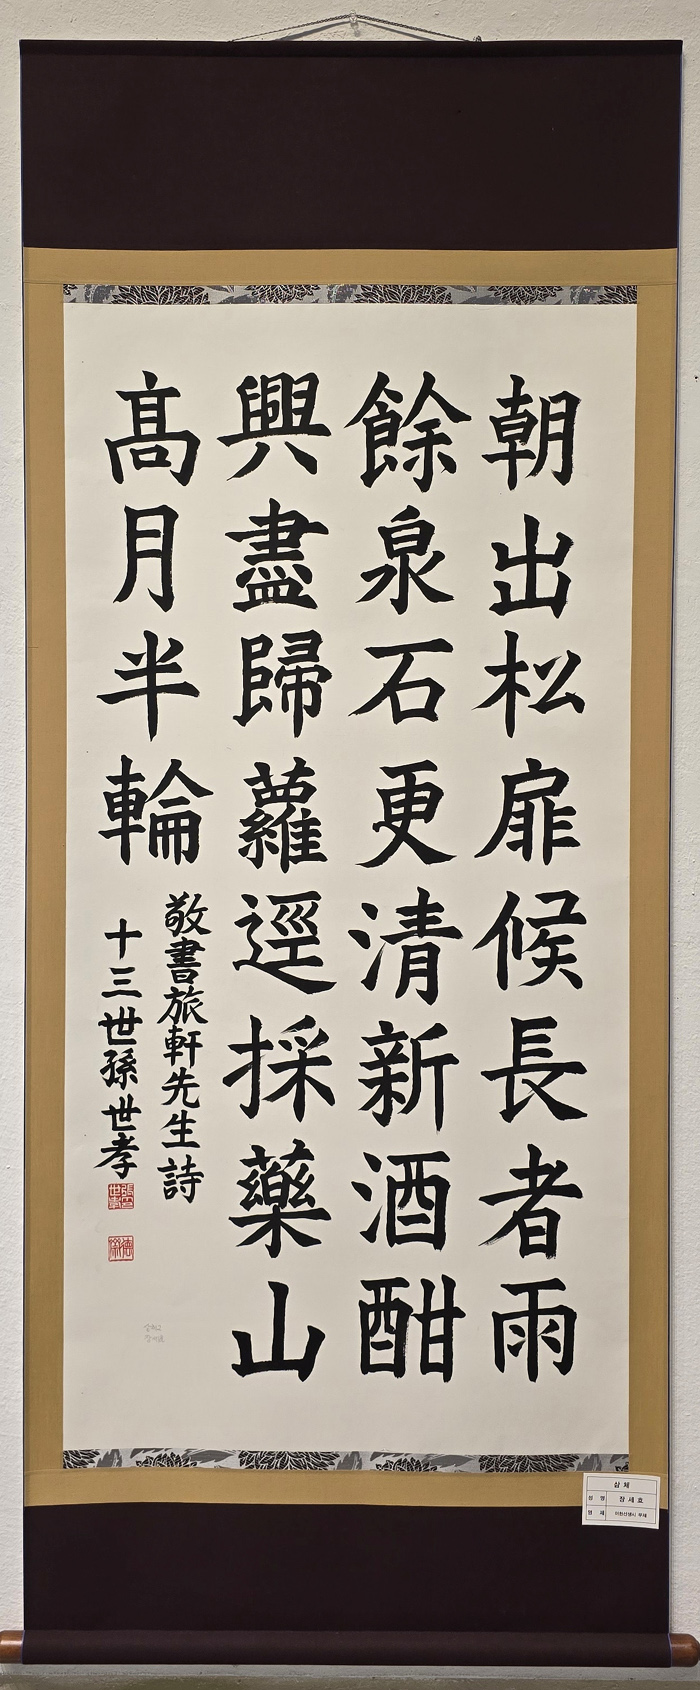 朝出松扉候長者雨
餘泉石更清新酒酣
興盡歸蘿逕採藥山
高月半輪
敬書旅軒先生詩
十三世孫世孝
삼체
성 명 장세호
명 제